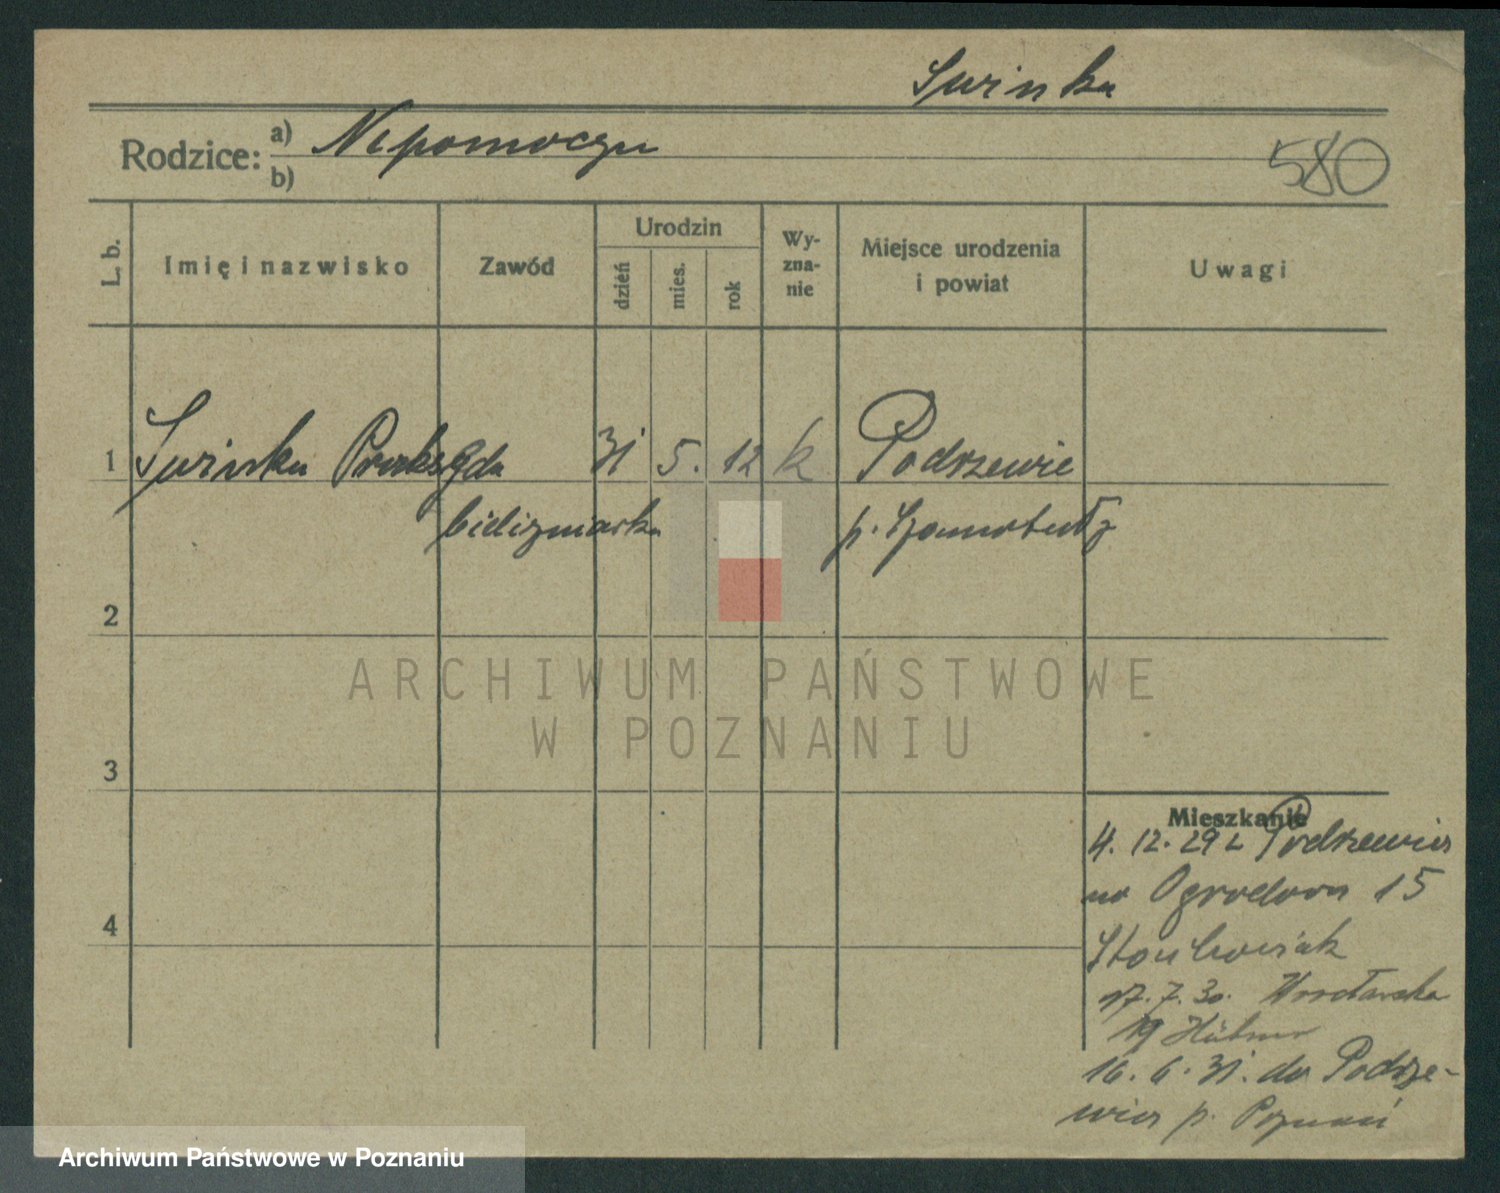 Swinka
Rodzice: a) Nepomoczyn
b)
580
L. b.
Imię i nazwisko
Zawód
Urodzin
dzień
mies.
rok
Wy-
zna-
nie
Miejsce urodzenia
i powiat
Uwagi
1 Swinka Praksęda 31 5. 12 k Podrzewie
bieliźniarka p. Szamotuły
2
ARCHIWUM PAŃSTWOWE
W POZNANIU
3
Mieszkanie
4. 12. 29 z Podrzewia
na Ogrodowa 15
4
17. 7. 30. Wrocławska
19
16. 6. 31. do Podrze-
wia p. Poznań
Archiwum Państwowe w Poznaniu